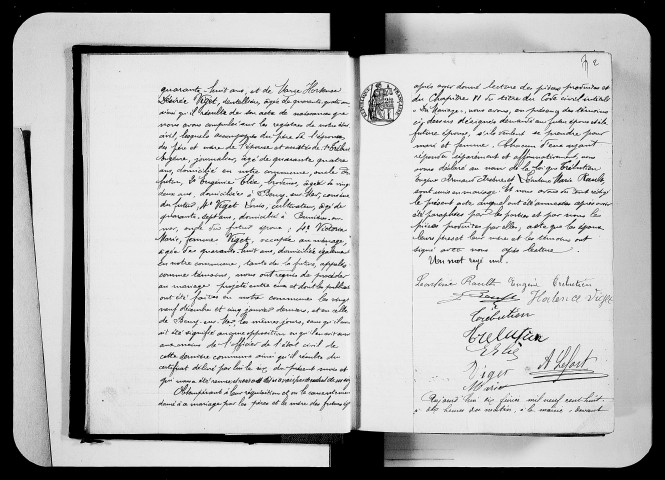 quarante-huit ans, et de Marie Hortense
Désirée Viget, dentellière, âgée de quarante quatre ans
ainsi qu'il résulte de son acte de naissance que
nous avons compulsé sur les registres de notre état
civil, lesquels accompagnés du père de l'époux
des père et mère de l'épouse et assistés de 1° Trébutien
journalier, âgé de quarante quatre
ans, domicilié en notre commune, oncle du
futur, 2° Eugénie brodeuse, âgée de vingt
deux ans, domiciliée à Bény-sur-Mer, cousine
du futur, 3° Viget Louis, cultivateur, âgé de
quarante-sept ans, domicilié à Bernières-sur-
mer, oncle du futur époux ; 4° Victoria
Marie, femme Viget, occupée au ménage,
âgée de quarante huit ans, domiciliée également
en notre commune, tante de la future, appelés
comme témoins, nous ont requis de procéder
au mariage projeté entre eux et dont les publications
ont été faites en notre commune les vingt
neuf décembre et cinq janvier derniers, et en celle
de Bény-sur-Mer les mêmes jours, sans qu'il nous
ait été signifié aucune opposition
de l'officier de l'état civil de
cette dernière commune ainsi qu'il résulte du
certificat délivré par lui le six du présent mois et
qui nous a été remis
Obtempérant à leur réquisition et vu le consentement
donné à ce mariage par les père et la mère des futurs et
2
après avoir donné lecture des pièces produites et
du Chapitre VI du titre du Code civil intitulé
« Du Mariage », nous avons, en présence des témoins
ci-dessus désignés demandé au futur époux et à la
future épouse, s'ils veulent se prendre pour
mari et femme. Chacun d'eux ayant
répondu séparément et affirmativement, nous
avons déclaré au nom de la loi que Trébutien
Eugène et Marie Rault
sont unis en mariage. Et nous avons du tout rédigé
le présent acte auquel ont été annexées après avoir
été paraphées par les parties et par nous les
pièces produites par elles, acte que les époux
leurs père et mère et les témoins ont
signé avec nous après lecture.
Un mot rayé nul.
Rault Eugène Trébutien
Rault Hortence Viget
Trébutien
Trebutien
Viget A. Lefort
Marie
Aujourd'hui six février mil neuf cent huit
à sept heures du matin, à la mairie, devant